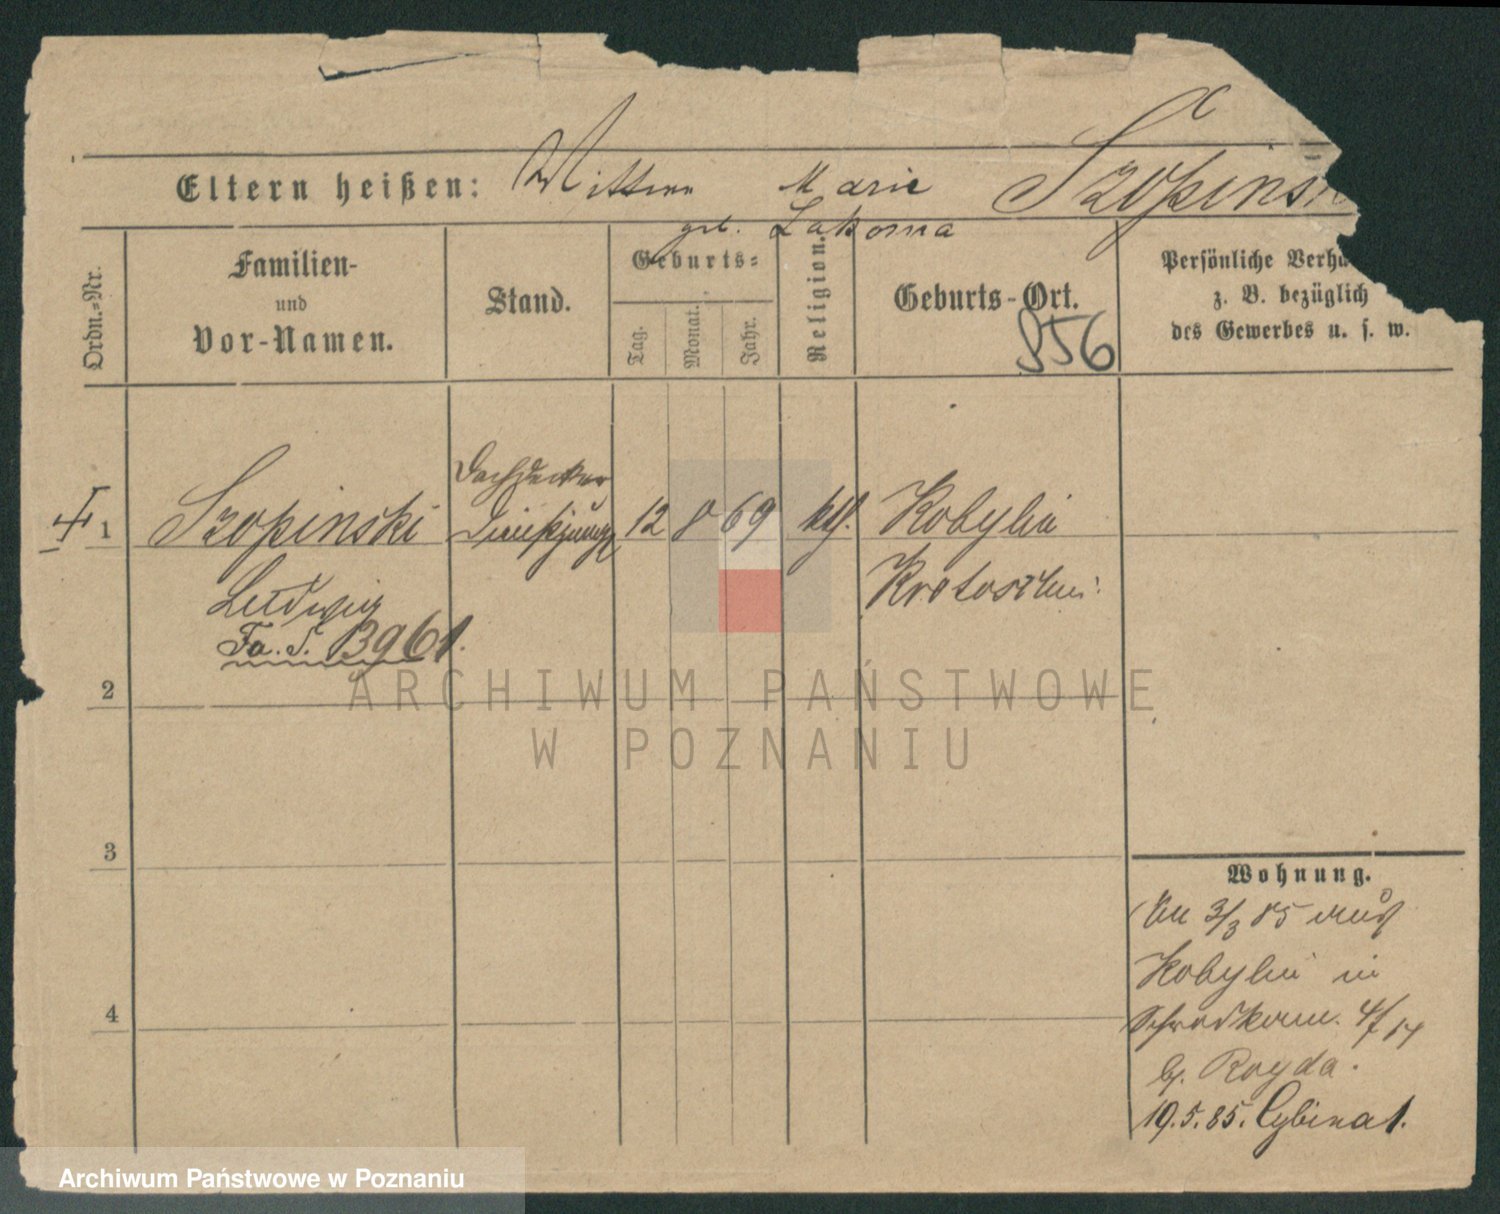 Eltern heißen: Marie Szopins
geb. Lakoma
Ordn.-Nr.
Familien-
und
Vor-Namen.
Stand.
Geburts-
Tag.
Monat.
Jahr.
Religion.
Geburts-Ort.
856
Persönliche Verhä
z. B. bezüglich
des Gewerbes u. s. w.
1
Szopinski
Ludwig
Fa. S. 13961.
Dachdecker
12 8 69 kth.
Kobylin
Krotoschin.
2
3
4
Wohnung.
3/3 85 aus
Kobylin in
4/14
b. Rogda.
19.5.85. Cybina 1.
ARCHIWUM PAŃSTWOWE
W POZNANIU
Archiwum Państwowe w Poznaniu